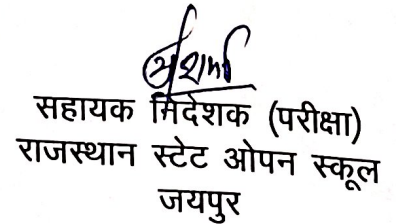 सहायक निदेशक (परीक्षा)
राजस्थान स्टेट ओपन स्कूल
जयपुर